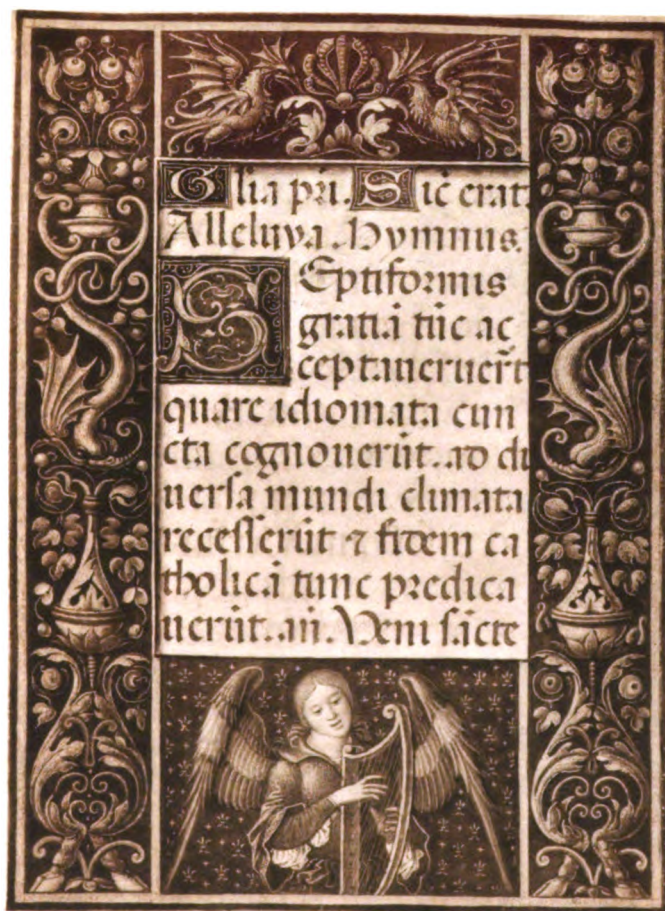 Glia pri. Sic̄ erat.
Alleluya. Hymnus.
Septiformis
gratiā tūc ac
ceptaueruer̄t
quare idiomata cun
cta cognouerūt. ad di
uersa mundi climata
recesserūt ⁊ fidem ca
tholicā tunc predica
uerūt. añ. Veni sācte